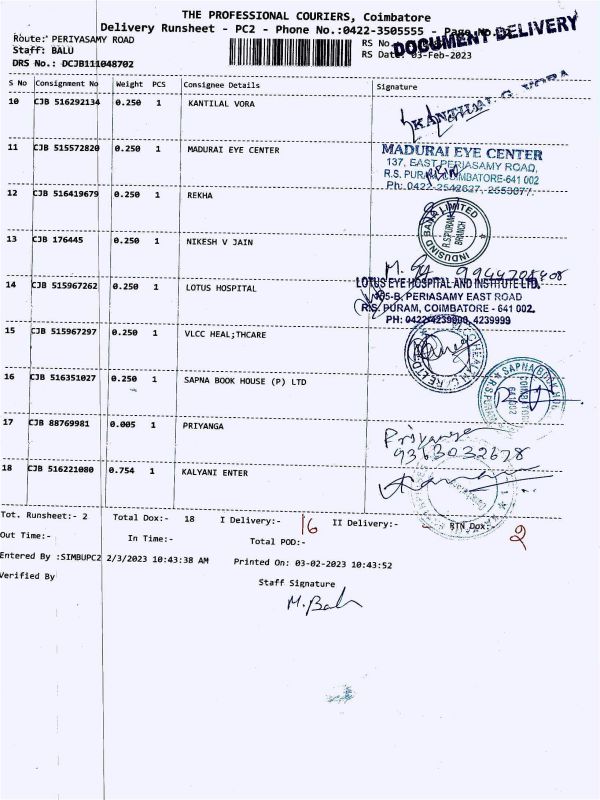 THE PROFESSIONAL COURIERS, Coimbatore
Delivery Runsheet - PC2 - Phone No.:0422-3505555 - Page No.
DOCUMENT DELIVERY
Route: PERIYASAMY ROAD
RS No.
Staff: BALU
RS Date: 03-Feb-2023
DRS No.: DCJB111048702
S No Consignment No Weight PCS Consignee Details Signature
10 CJB 516292134 0.250 1 KANTILAL VORA
KANTILAL G. VORA
11 CJB 515572820 0.250 1 MADURAI EYE CENTER
MADURAI EYE CENTER
137, EAST PERIASAMY ROAD,
R.S. PURAM, COIMBATORE-641 002
Ph: 0422-2542627,
12 CJB 516419679 0.250 1 REKHA
INDUSIND BANK LIMITED
R.S.PURAM
BRANCH
13 CJB 176445 0.250 1 NIKESH V JAIN
14 CJB 515967262 0.250 1 LOTUS HOSPITAL
LOTUS EYE HOSPITAL AND INSTITUTE LTD.
PERIASAMY EAST ROAD
R.S. PURAM, COIMBATORE - 641 002.
PH: 0422-4239900, 4239999
15 CJB 515967297 0.250 1 VLCC HEAL;THCARE
16 CJB 516351027 0.250 1 SAPNA BOOK HOUSE (P) LTD
SAPNA BOOK
COIMBATORE
641 002
17 CJB 88769981 0.005 1 PRIYANGA
Priyanga
9363032678
18 CJB 516221080 0.754 1 KALYANI ENTER
Tot. Runsheet:- 2 Total Dox:- 18 I Delivery:- 16 II Delivery:- RTN Dox:- 2
Out Time:- In Time:- Total POD:-
Entered By :SIMBUPC2 2/3/2023 10:43:38 AM Printed On: 03-02-2023 10:43:52
Verified By
Staff Signature
M. Balu